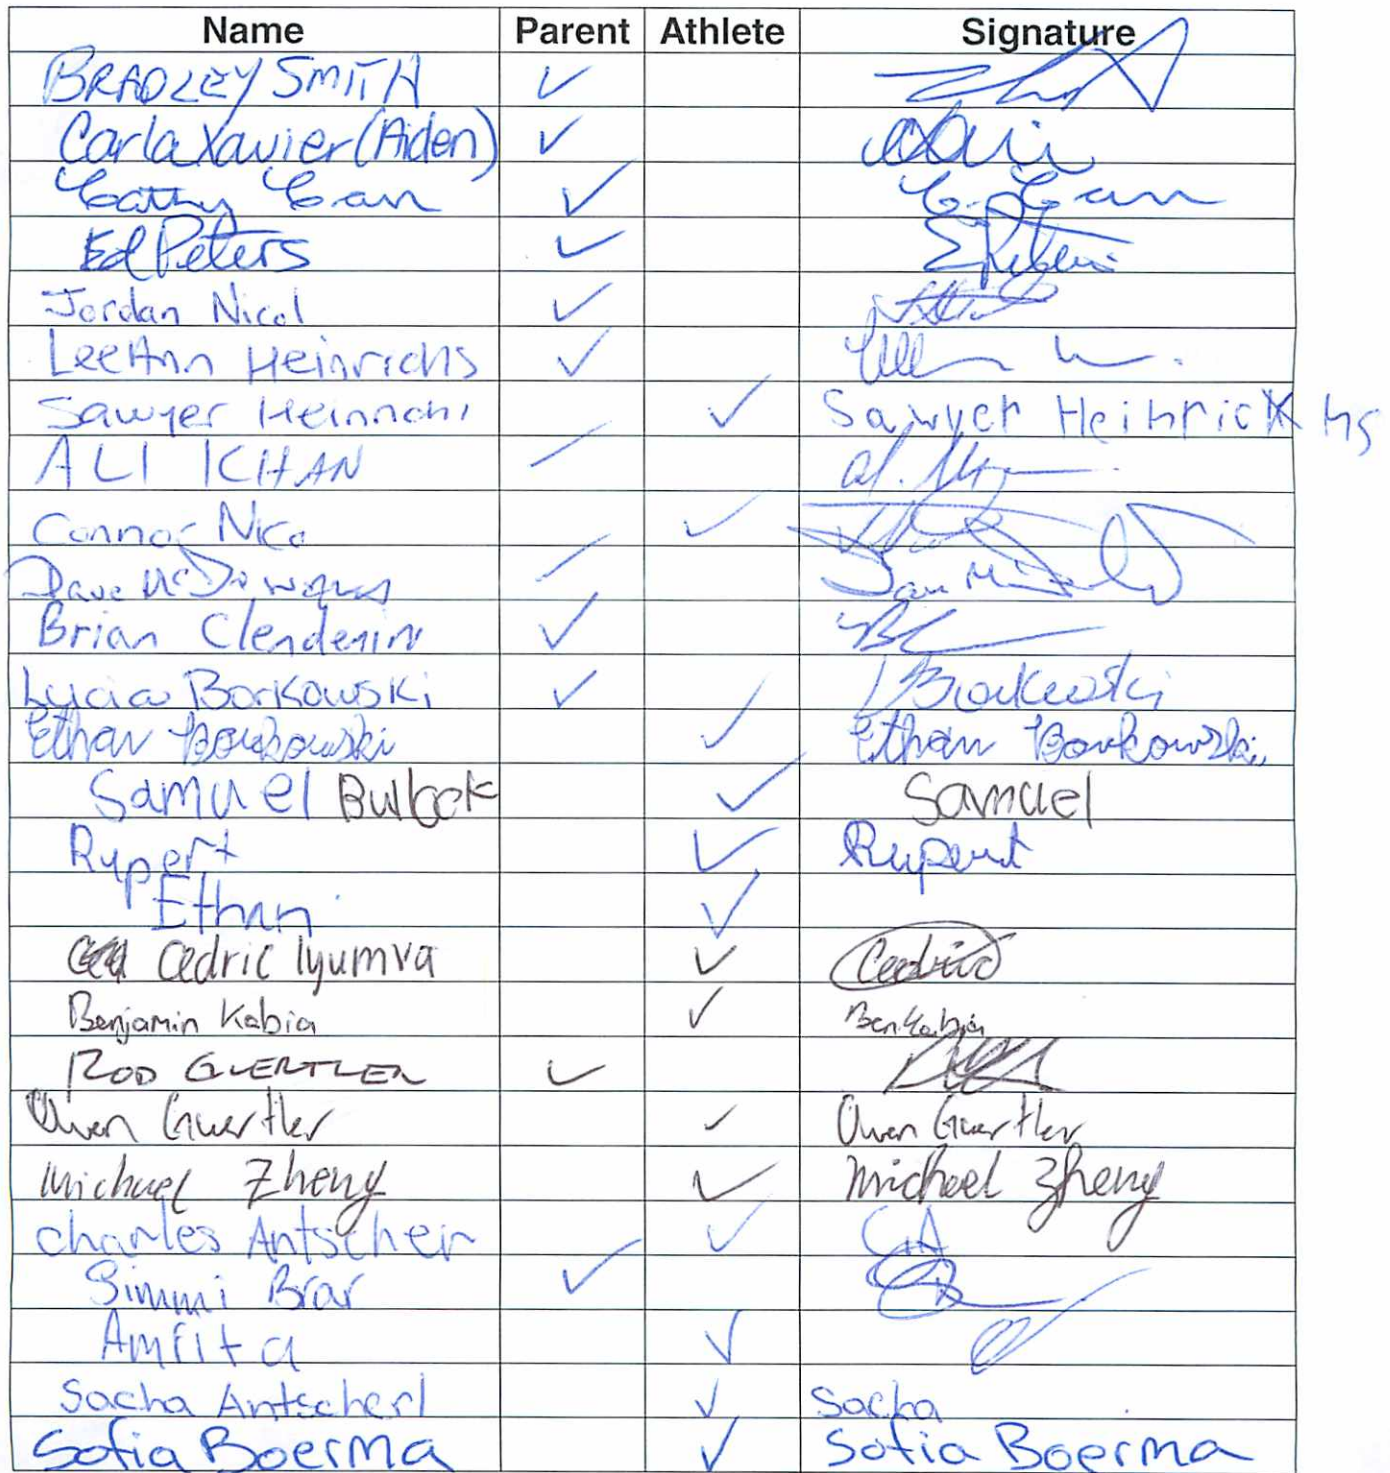 Name Parent Athlete Signature
BRADLEY SMITH ✓
Carla Xavier (Aiden) ✓
Cathy Can ✓ C. Can
Ed Peters ✓ E Peters
Jordan Nicol ✓
LeeAnn Heinrichs ✓
Sawyer Heinrichs ✓ Sawyer Heinrichs
ALI KHAN ✓
Connor Nico ✓
Dave ✓
Brian Clendenin ✓ BC
Lucia Borkowski ✓ Borkowski
Ethan Borkowski ✓ Ethan Borkowski
Samuel Bullock ✓ Samuel
Rupert ✓ Rupert
Ethan ✓
Cedric Iyumva ✓ Cedric
Benjamin Kabia ✓ Ben Kabia
ROD GUERTLER ✓
Owen Guertler ✓ Owen Guertler
Michael Zheng ✓ Michael Zheng
Charles Antscherl ✓ CA
Simmi Brar ✓
Amrita ✓
Sacha Antscherl ✓ Sacha
Sofia Boerma ✓ Sofia Boerma